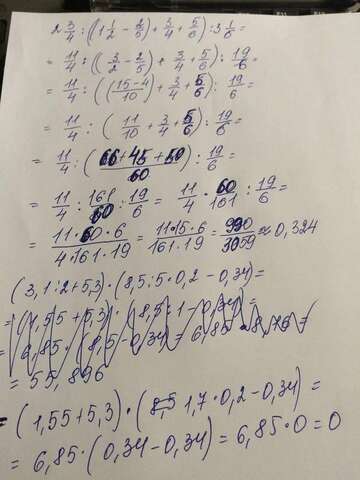 2 3/4 : ((1 1/2 - 2/5) + 3/4 + 5/6) : 3 1/6 =
= 11/4 : ((3/2 - 2/5) + 3/4 + 5/6) : 19/6 =
= 11/4 : (((15-4)/10) + 3/4 + 5/6) : 19/6 =
= 11/4 : (11/10 + 3/4 + 5/6) : 19/6 =
= 11/4 : ((66+45+50)/60) : 19/6 =
= 11/4 : 161/60 : 19/6 = 11/4 · 60/161 : 19/6 =
= (11·60·6)/(4·161·19) = (11·15·6)/(161·19) = 990/3059 ≈ 0,324
(3,1:2+5,3)·(8,5:5·0,2-0,34)=
= (1,55+5,3)·(8,5:1-0,34)=
= 6,85·(8,5-0,34)= 6,85·8,16=
= 55,896
= (1,55+5,3)·(8,5 1,7·0,2-0,34)=
= 6,85·(0,34-0,34)= 6,85·0=0